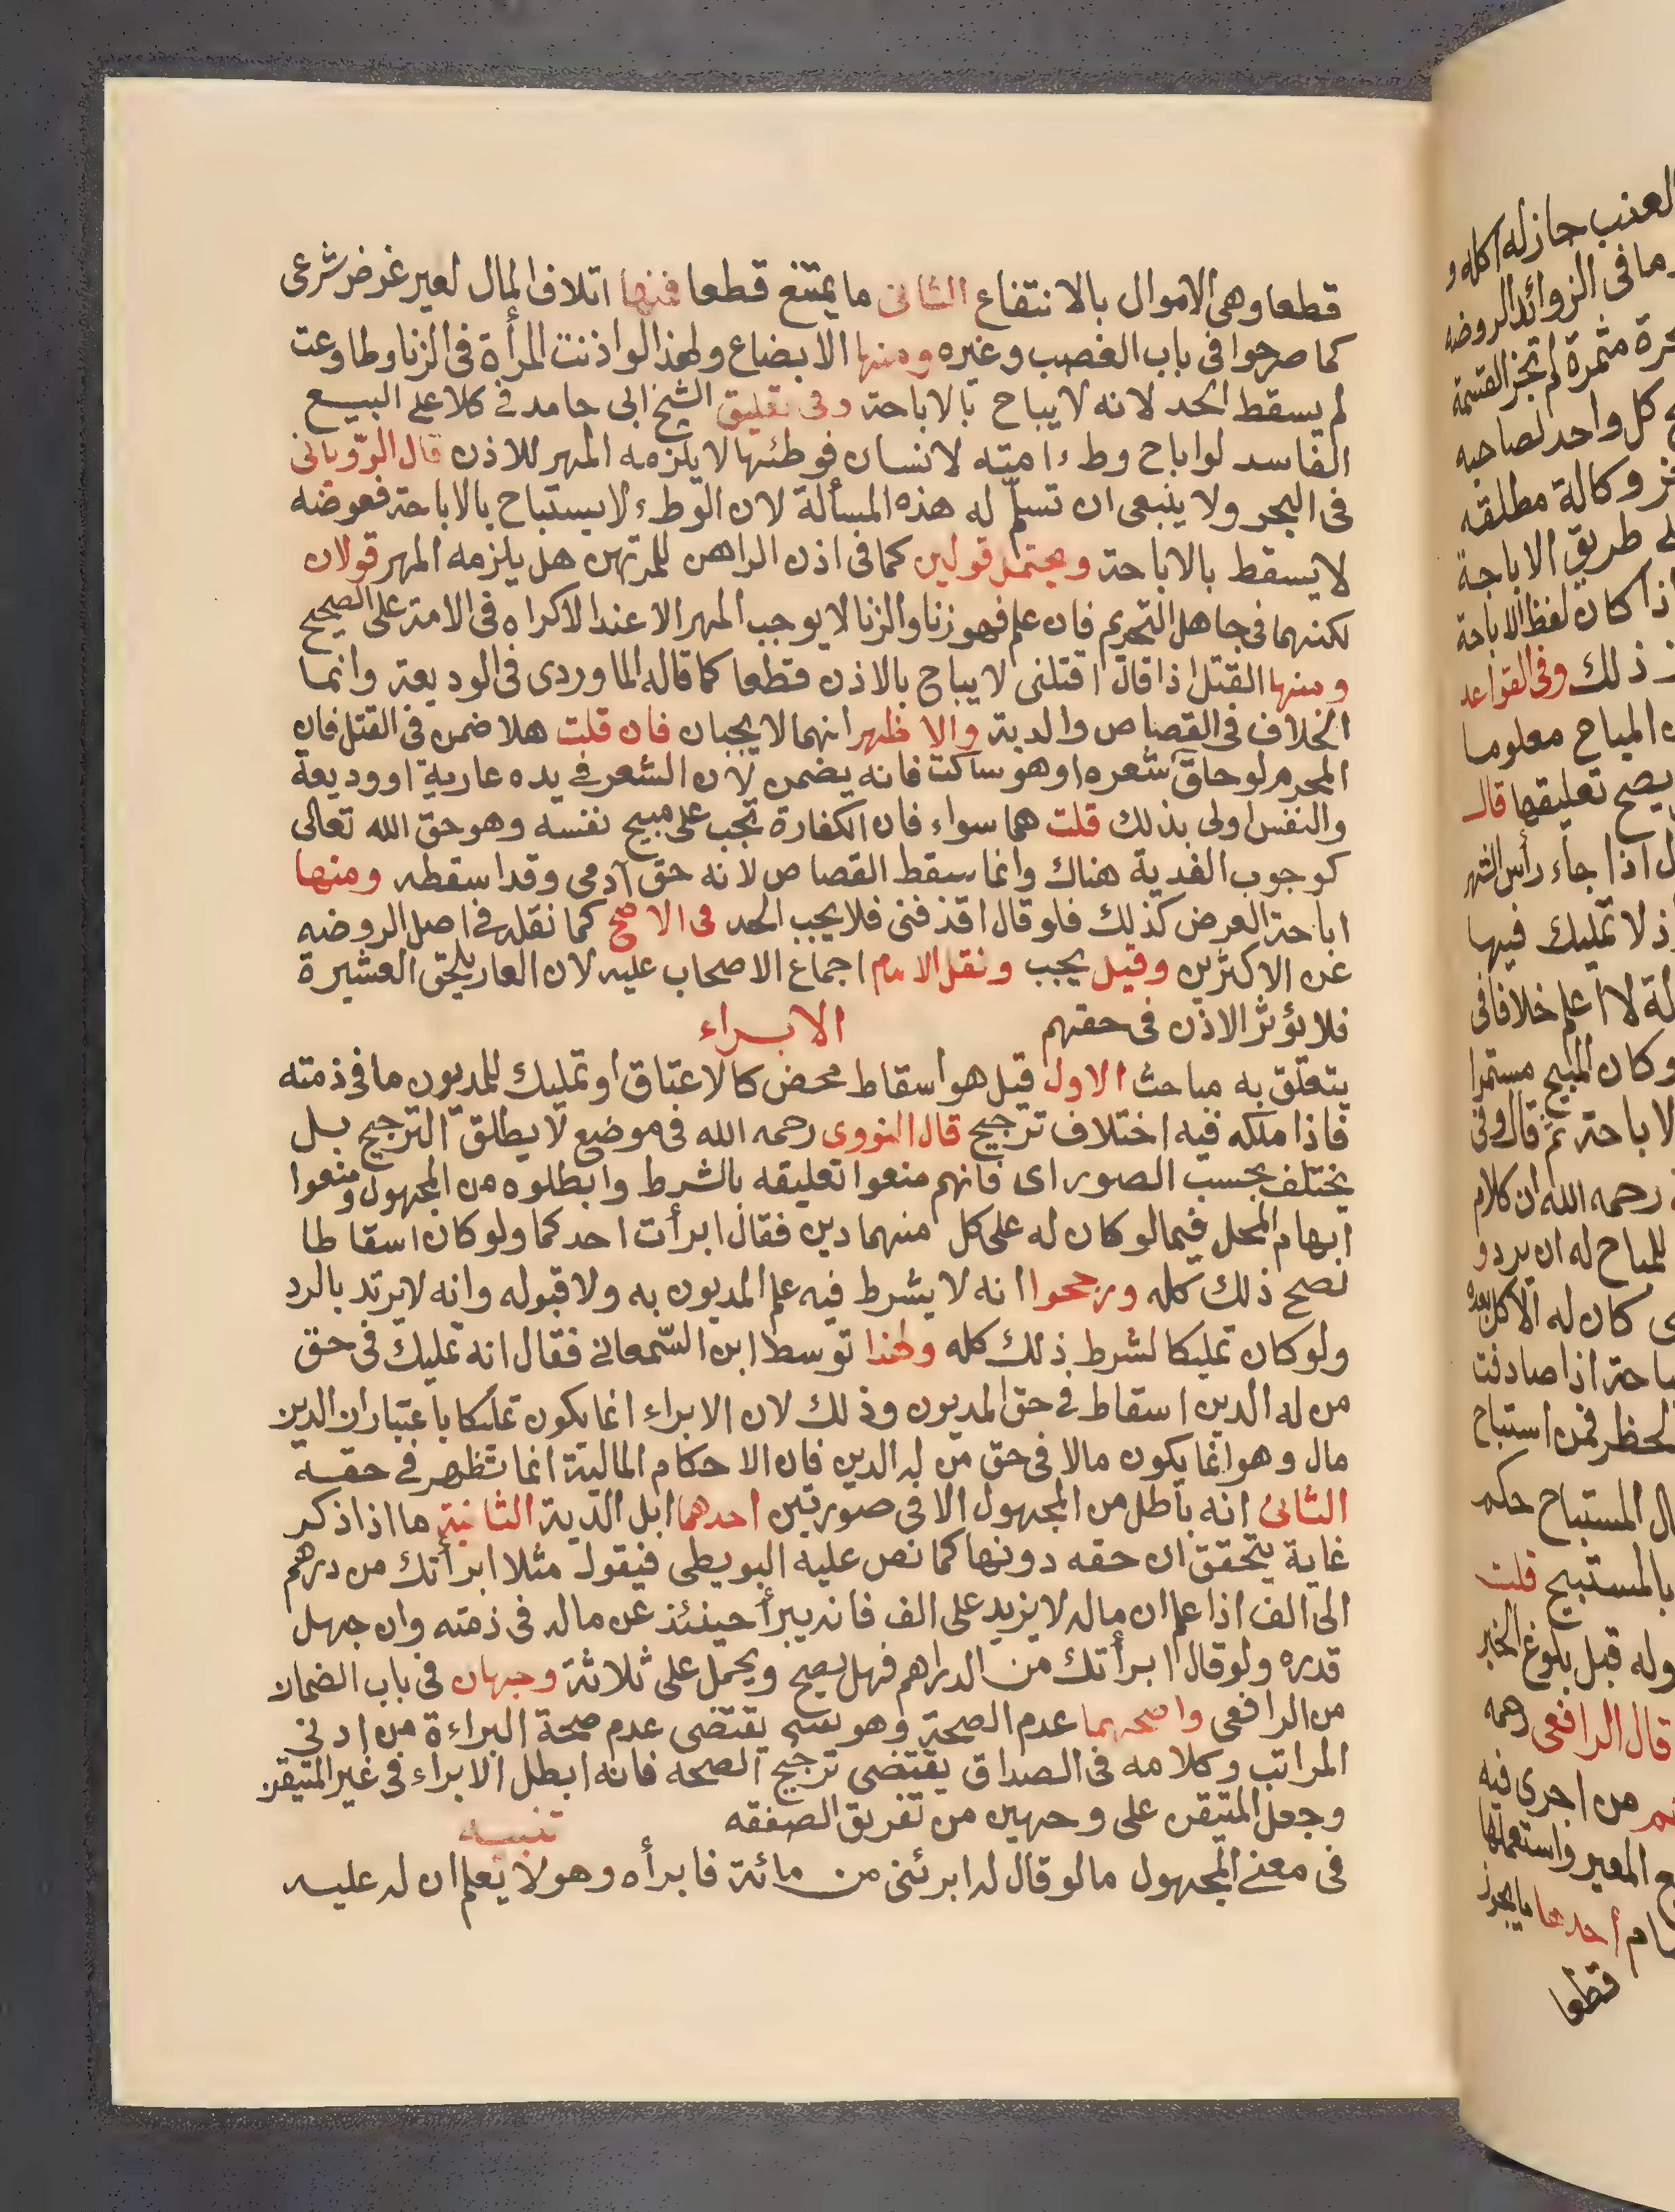 قطعا وهى الاموال بالانتفاع الثانى ما يمتنع قطعا فمنها اتلاف المال لغير غرض شرعى
كما صرحوا فى باب الغصب وغيره ومنها الابضاع ولهذا لو اذنت المرأة فى الزنا وطاوعت
لم يسقط الحد لانه لا يباح بالاباحة وفى تعليق الشيخ ابى حامد فى كلا على البيع
الفاسد لو اباح وطء امته لانسان فوطئها لا يلزمه المهر للاذن قال الرّويانى
فى البحر ولا ينبعى ان تسلّم له هذه المسألة لان الوطء لا يستباح بالاباحة فعوضه
لا يسقط بالاباحة ويحتمل قولين كما فى اذن الراهن للمرتهن هل يلزمه المهر قولان
لكنهما فى جاهل التحريم فان علم فهو زنا والزنا لا يوجب المهر الا عند الاكراه فى الامة على الصحيح
ومنها القتل اذا قال اقتلنى لا يباح بالاذن قطعا كما قاله الماوردى فى الوديعة وانما
الخلاف فى القصاص والدية والاظهر انهما لا يجبان فان قلت هلا ضمن فى القتل فان
المحرم لو حلق شعره او هو ساكت فانه يضمن لان الشعر فى يده عارية او وديعة
والنفس اولى بذلك قلت هما سواء فان الكفارة تجب على مبيح نفسه وهو حق الله تعالى
كوجوب الفدية هناك وانما سقط القصاص لانه حق آدمى وقد اسقطه ومنها
اباحة العرض كذلك فلو قال اقذفنى فلا يجب الحد فى الاصح كما نقله فى اصل الروضه
عن الاكثرين وقيل يجب ونقل الامام اجماع الاصحاب عليه لان العار يلحق العشيرة
فلا يؤثر الاذن فى حقهم الابراء
يتعلق به مباحث الاول قيل هو اسقاط محض كالاعتاق او تمليك للمديون ما فى ذمته
فاذا ملكه فيه اختلاف ترجيح قال النووى رحمه الله فى موضع لا يطلق الترجيح بل
يختلف بحسب الصور اى فانهم منعوا تعليقه بالشرط وابطلوه من المجهول ومنعوا
ابهام المحل فيما لو كان له على كل منهما دين فقال ابرأت احدكما ولو كان اسقاطا
لصح ذلك كله ورجحوا انه لا يشرط فيه علم المديون به ولا قبوله وانه لا يرتد بالرد
ولو كان تمليكا لشرط ذلك كله ولهذا توسط ابن السّمعانى فقال انه تمليك فى حق
من له الدين اسقاط فى حق المديون وذلك لان الابراء انما يكون تمليكا باعتبار ان الدين
مال وهو انما يكون مالا فى حق من له الدين فان الاحكام المالية انما تظهر فى حقه
الثانى انه باطل من المجهول الا فى صورتين احدهما ابل الدية الثانية ما اذا ذكر
غاية يتحقق ان حقه دونها كما نص عليه البويطى فيقول مثلا ابرأتك من درهم
الى الف اذا علم ان ماله لا يزيد على الف فانه يبرأ حينئذ عن ماله فى ذمته وان جهل
قدره ولو قال ابرأتك من الدراهم فهل يصح ويحمل على ثلاثة وجهان فى باب الضمان
من الرافعى واصحهما عدم الصحة وهو يقتضى عدم صحة البراءة من ادنى
المراتب وكلامه فى الصداق يقتضى ترجيح الصحه فانه ابطل الابراء فى غير المتيقن
وجعل المتيقن على وجهين من تفريق الصفقه تنبيه
فى معنى المجهول ما لو قال له ابرئنى من مائة فابرأه وهو لا يعلم ان له عليه
العنب جاز له اكله و
ما فى الزوائد الروضه
مثمرة لم تجز القسمة
كل واحد لصاحبه
وكالة مطلقه
طريق الاباحة
اذا كان لفظ الاباحة
ذلك وفى القواعد
المباح معلوما
يصح تعليقها قال
اذا جاء رأس الشهر
اذ لا تمليك فيها
لا اعلم خلافا فى
وكان المبيح مستمرا
الاباحة ثم قال وفى
رحمه الله ان كلام
للمباح له ان يرد و
كان له الاكل بعده
اذا صادفت
الحظر فمن استباح
المستباح حكم
بالمستبيح قلت
قبل بلوغ الخبر
قال الرافعى رحمه
من اجرى فيه
المعير واستعملها
أحدها ما يجوز
قطعا